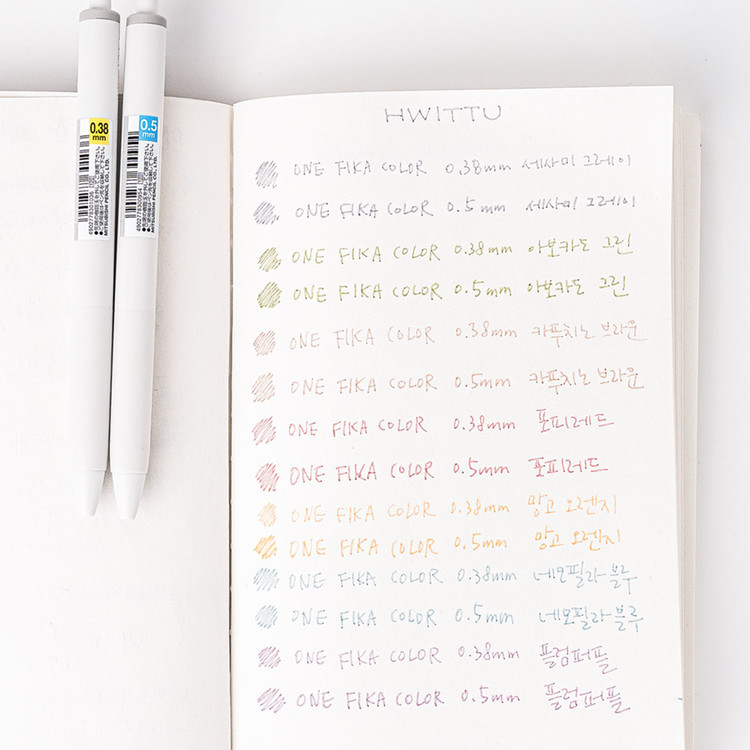 0.38
mm
0.5
mm
MITSUBISHI PENCIL CO., LTD.
HWITTU
ONE FIKA COLOR 0.38mm 세사미 그레이
ONE FIKA COLOR 0.5mm 세사미 그레이
ONE FIKA COLOR 0.38mm 아보카도 그린
ONE FIKA COLOR 0.5mm 아보카도 그린
ONE FIKA COLOR 0.38mm 카푸치노 브라운
ONE FIKA COLOR 0.5mm 카푸치노 브라운
ONE FIKA COLOR 0.38mm 포피레드
ONE FIKA COLOR 0.5mm 포피레드
ONE FIKA COLOR 0.38mm 망고 오렌지
ONE FIKA COLOR 0.5mm 망고 오렌지
ONE FIKA COLOR 0.38mm 네모필라 블루
ONE FIKA COLOR 0.5mm 네모필라 블루
ONE FIKA COLOR 0.38mm 플럼퍼플
ONE FIKA COLOR 0.5mm 플럼퍼플